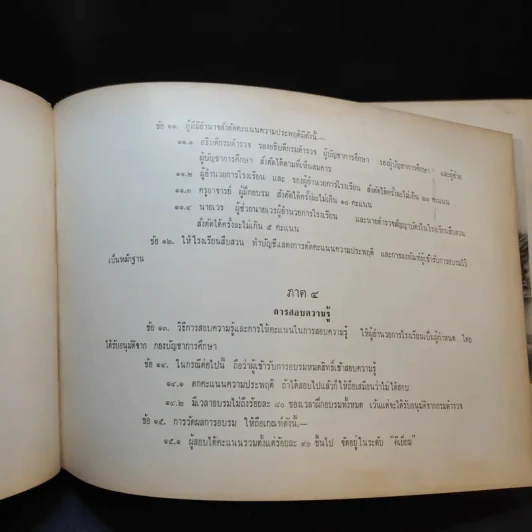 ข้อ ๑๑. ผู้มีอำนาจสั่งตัดคะแนนความประพฤติมีดังนี้.—
๑๑.๑ อธิบดีกรมตำรวจ รองอธิบดีกรมตำรวจ ผู้บัญชาการศึกษา รองผู้บัญชาการศึกษา และผู้ช่วย
ผู้บัญชาการศึกษา สั่งตัดได้ตามที่เห็นสมควร
๑๑.๒ ผู้อำนวยการโรงเรียน และ รองผู้อำนวยการโรงเรียน สั่งตัดได้ครั้งละไม่เกิน ๒๐ คะแนน
๑๑.๓ ครูอาจารย์ ผู้ฝึกอบรม สั่งตัดได้ครั้งละไม่เกิน ๑๐ คะแนน
๑๑.๔ นายเวร ผู้ช่วยนายเวรผู้อำนวยการโรงเรียน และนายตำรวจสัญญาบัตรในโรงเรียนสืบสวน
สั่งตัดได้ครั้งละไม่เกิน ๕ คะแนน
ข้อ ๑๒. ให้โรงเรียนสืบสวน ทำบัญชีแสดงการตัดคะแนนความประพฤติ และการลงทัณฑ์ผู้เข้ารับการอบรมไว้
เป็นหลักฐาน
ภาค ๔
การสอบความรู้
ข้อ ๑๓. วิธีการสอบความรู้และการให้คะแนนในการสอบความรู้ ให้ผู้อำนวยการโรงเรียนเป็นผู้กำหนด โดย
ได้รับอนุมัติจาก กองบัญชาการศึกษา
ข้อ ๑๔. ในกรณีต่อไปนี้ ถือว่าผู้เข้ารับการอบรมหมดสิทธิ์เข้าสอบความรู้
๑๔.๑ ตกคะแนนความประพฤติ ถ้าได้สอบไปแล้วก็ให้ถือเสมือนว่าไม่ได้สอบ
๑๔.๒ มีเวลาอบรมไม่ถึงร้อยละ ๘๐ ของเวลาฝึกอบรมทั้งหมด เว้นแต่จะได้รับอนุมัติจากกรมตำรวจ
ข้อ ๑๕. การวัดผลการอบรม ให้ถือเกณฑ์ดังนี้.—
๑๕.๑ ผู้สอบได้คะแนนรวมตั้งแต่ร้อยละ ๙๐ ขึ้นไป จัดอยู่ในระดับ "ดีเยี่ยม"